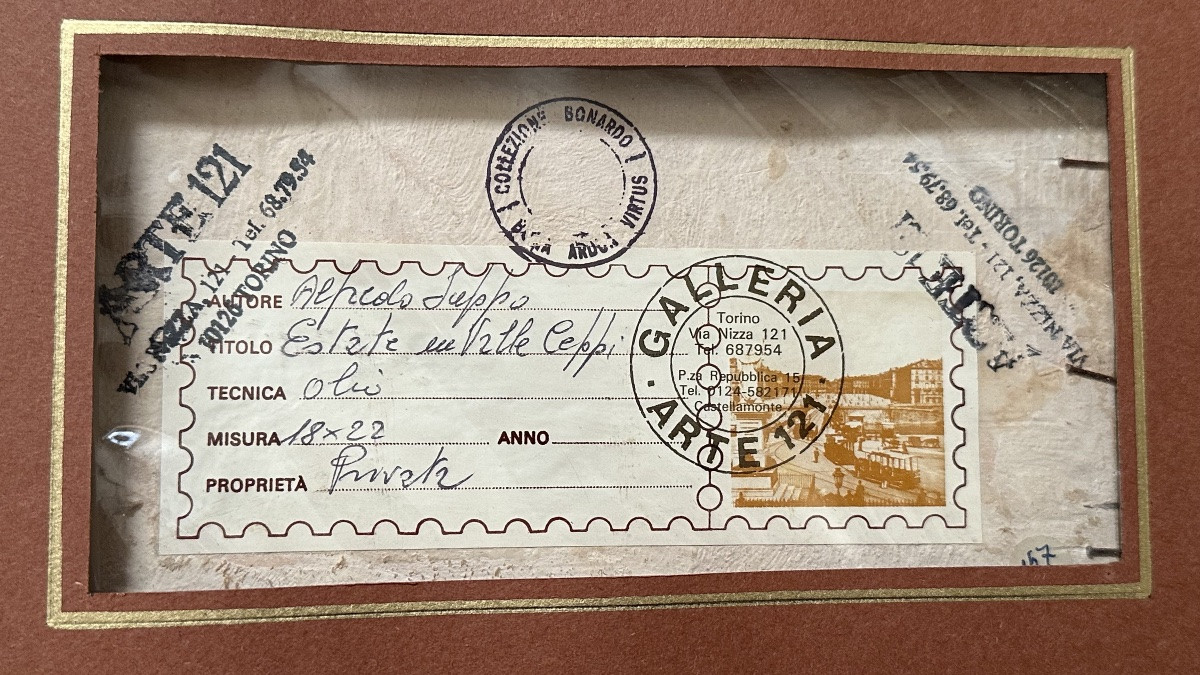 COLLEZIONE BONARDO
ARDUA VIRTUS
ARTE 121
VIA NIZZA, 121 - Tel. 68.79.54
10126 TORINO
ARTE 121
VIA NIZZA, 121 - Tel. 68.79.54
10126 TORINO
AUTORE Alfredo Suppo
TITOLO Estate in Valle Ceppi
TECNICA Olio
MISURA 18x22 ANNO
PROPRIETÀ Privata
GALLERIA
Torino
Via Nizza 121
Tel. 687954
P.za Repubblica 15
Tel. 0124-582171
Castellamonte
ARTE 121